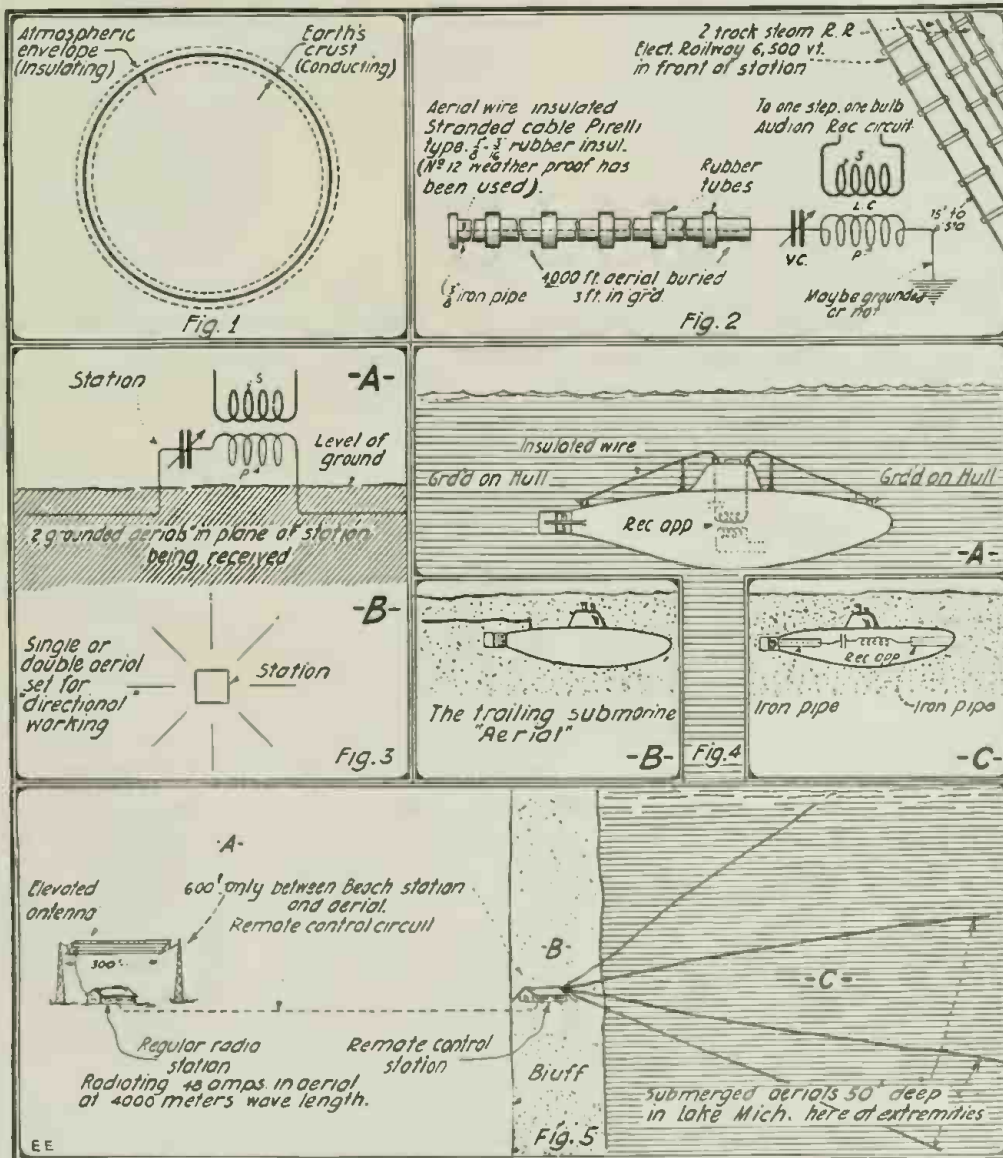 Atmospheric
envelope
(Insulating)
Earth's
crust
(Conducting)
Fig. 1
2 track steam R.R
Elect. Railway 6,500 vt.
in front of station
Aerial wire insulated
Stranded cable Pirelli
rubber insul.
(Nº 12 weather proof has
been used).
Rubber
tubes
To one step. one bulb
Audion Rec circuit
S
L.C
P
V.C.
15' to
sta
iron pipe
4000 ft. aerial buried
3 ft. in gr'd.
Maybe grounded
or not
Fig. 2
Station
-A-
S
P
Level of
ground
2 grounded aerials in plane of station
being received
-B-
Single or
double aerial
set for
"directional"
working
Station
Fig. 3
Insulated wire
Grd'd on Hull
Grd'd on Hull
Rec app
-A-
The trailing submarine
"Aerial"
-B-
Fig. 4
Rec app
Iron pipe
Iron pipe
-C-
-A-
Elevated
antenna
600' only between Beach station
and aerial.
Remote control circuit
300'
Regular radio
station
Remote control
station
Radiating 48 amps. in aerial
at 4000 meters wave length.
-B-
Bluff
-C-
Submerged aerials 50' deep
in Lake Mich. here at extremities
EE
Fig. 5